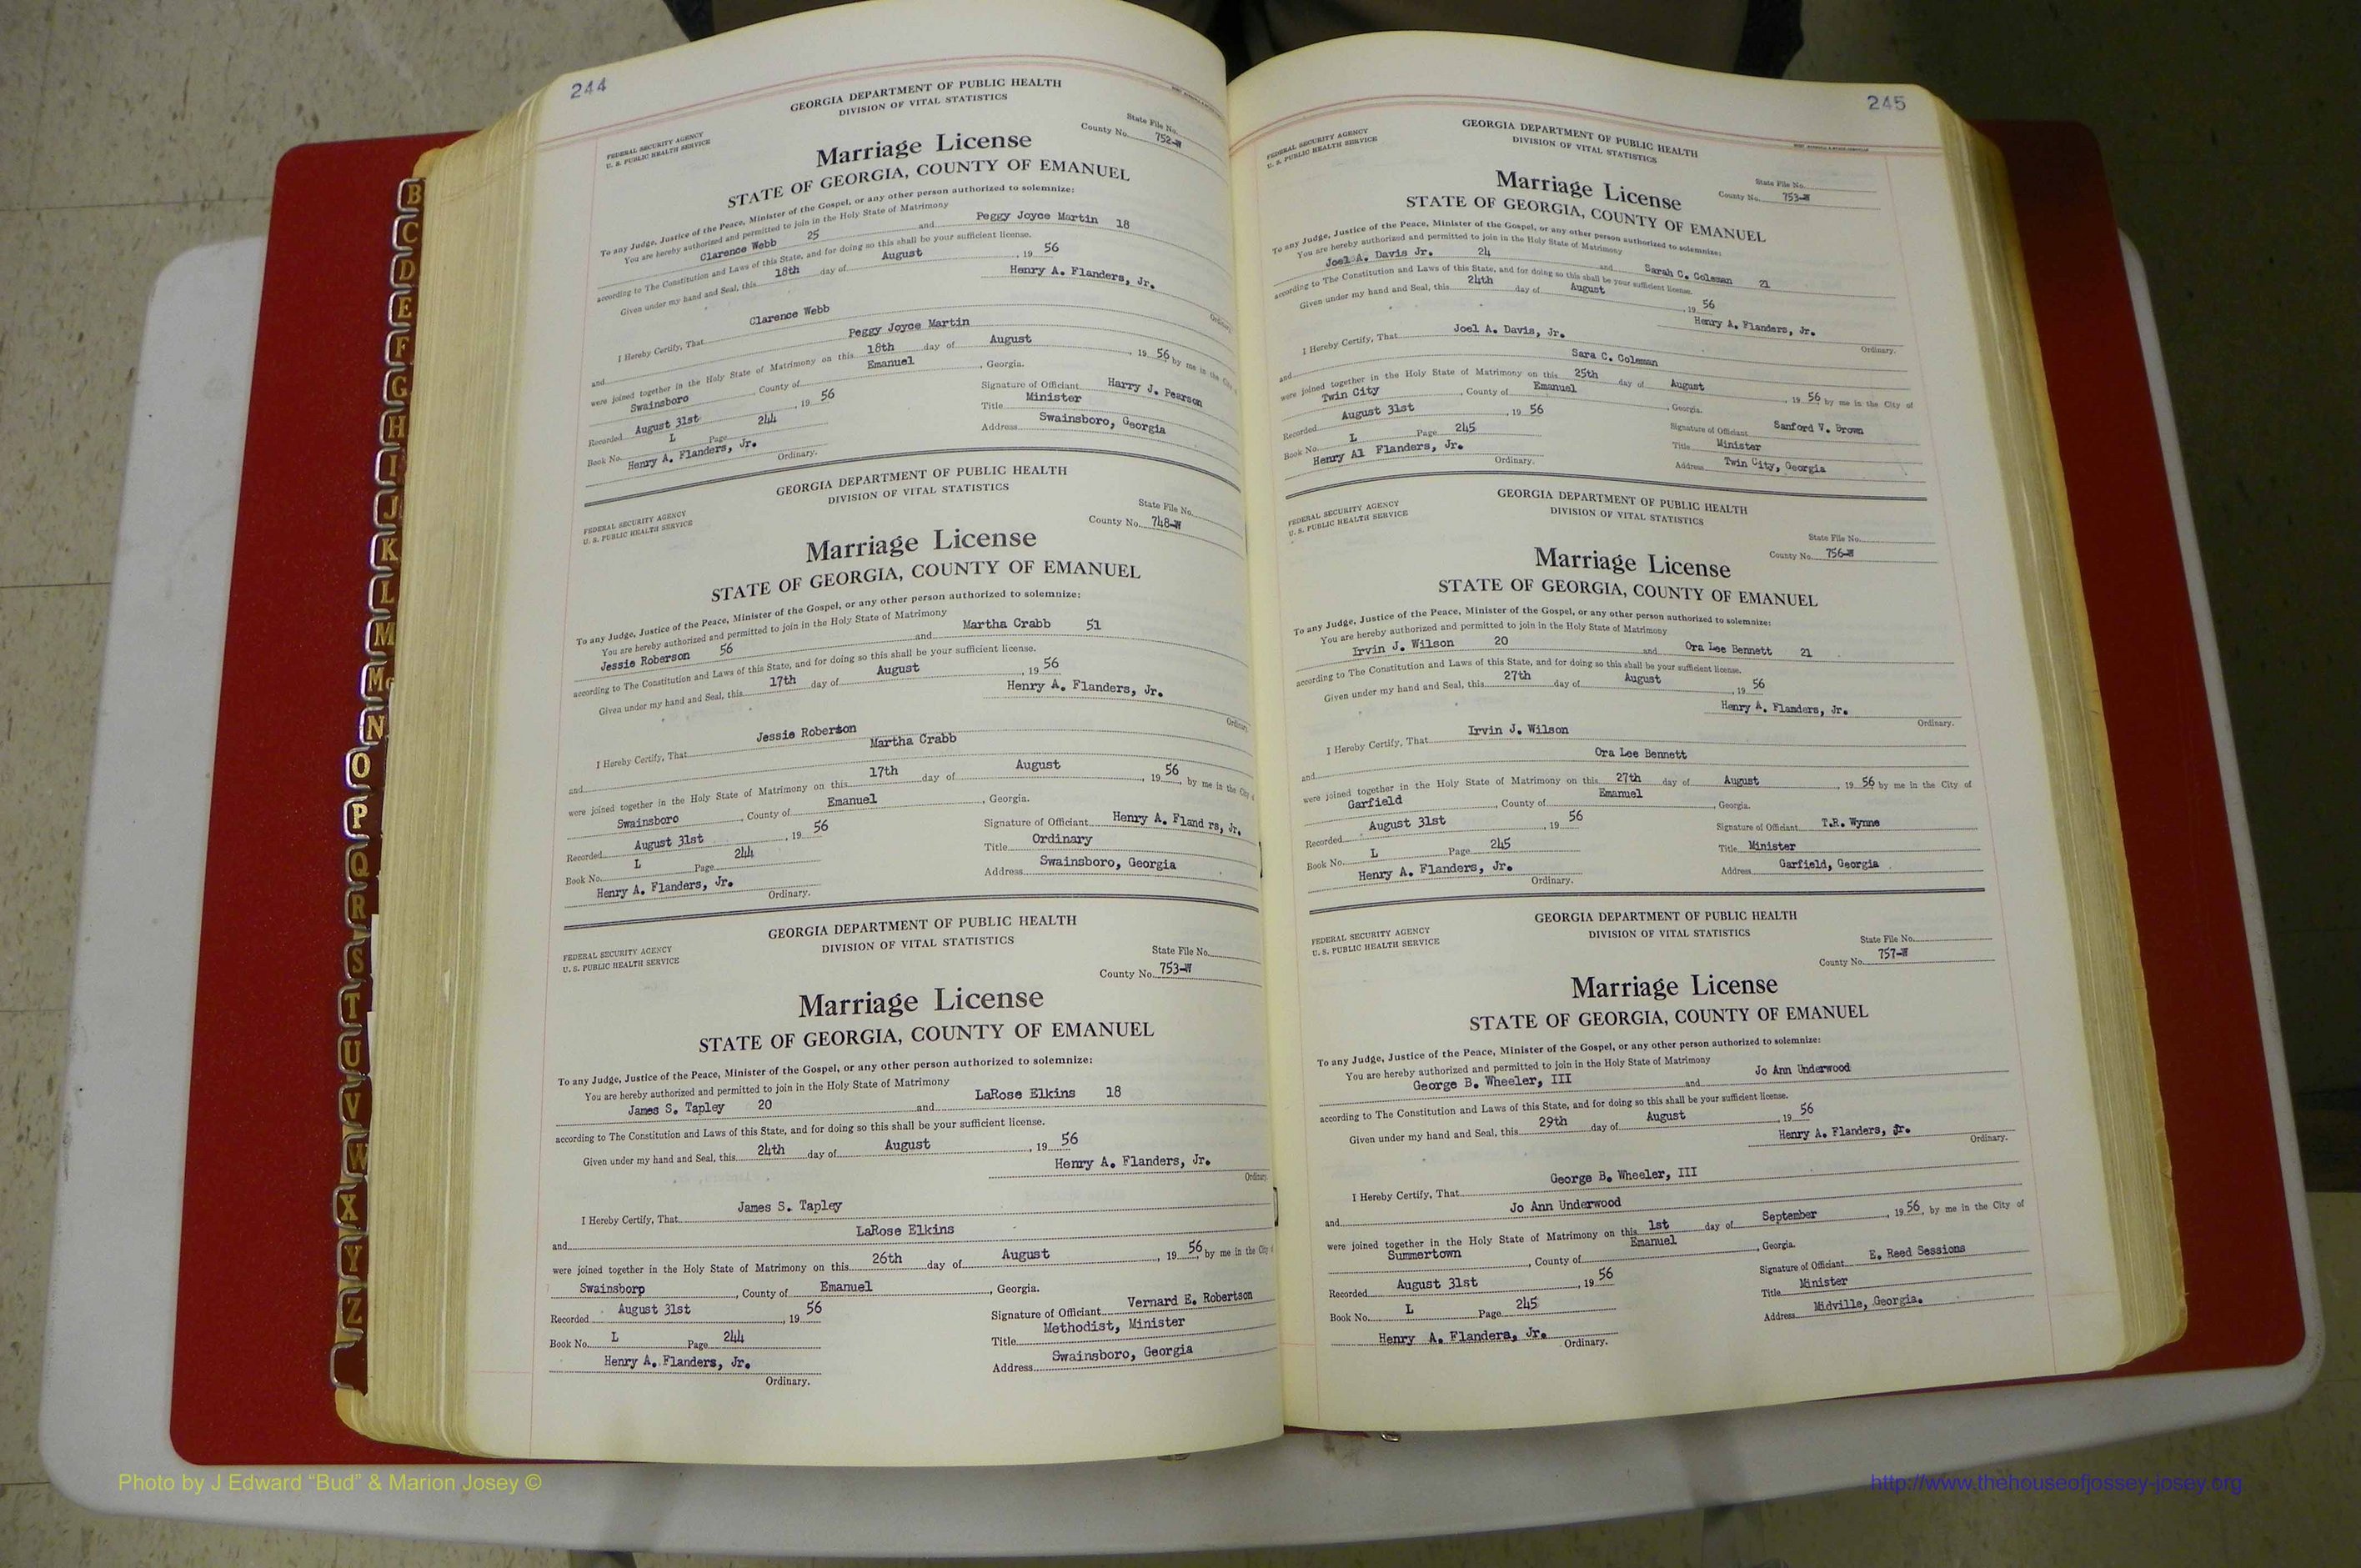 244
GEORGIA DEPARTMENT OF PUBLIC HEALTH
DIVISION OF VITAL STATISTICS
FEDERAL SECURITY AGENCY
U. S. PUBLIC HEALTH SERVICE
State File No.
County No. 752-W
Marriage License
STATE OF GEORGIA, COUNTY OF EMANUEL
To any Judge, Justice of the Peace, Minister of the Gospel, or any other person authorized to solemnize:
You are hereby authorized and permitted to join in the Holy State of Matrimony
Clarence Webb 25 and Peggy Joyce Martin 18
according to The Constitution and Laws of this State, and for doing so this shall be your sufficient license.
Given under my hand and Seal, this 18th day of August, 19 56
Henry A. Flanders, Jr.
Ordinary
I Hereby Certify, That Clarence Webb
and Peggy Joyce Martin
were joined together in the Holy State of Matrimony on this 18th day of August, 19 56 by me in the City of
Swainsboro, County of Emanuel, Georgia.
Recorded August 31st, 19 56
Signature of Officiant Harry J. Pearson
Book No. L Page 244
Title Minister
Henry A. Flanders, Jr.
Address Swainsboro, Georgia
Ordinary.
GEORGIA DEPARTMENT OF PUBLIC HEALTH
DIVISION OF VITAL STATISTICS
FEDERAL SECURITY AGENCY
U. S. PUBLIC HEALTH SERVICE
State File No.
County No. 748-W
Marriage License
STATE OF GEORGIA, COUNTY OF EMANUEL
To any Judge, Justice of the Peace, Minister of the Gospel, or any other person authorized to solemnize:
You are hereby authorized and permitted to join in the Holy State of Matrimony
Jessie Roberson 56 and Martha Crabb 51
according to The Constitution and Laws of this State, and for doing so this shall be your sufficient license.
Given under my hand and Seal, this 17th day of August, 19 56
Henry A. Flanders, Jr.
Ordinary
I Hereby Certify, That Jessie Roberson
and Martha Crabb
were joined together in the Holy State of Matrimony on this 17th day of August, 19 56, by me in the City of
Swainsboro, County of Emanuel, Georgia.
Recorded August 31st, 19 56
Signature of Officiant Henry A. Fland rs, Jr.
Book No. L Page 244
Title Ordinary
Henry A. Flanders, Jr.
Address Swainsboro, Georgia
Ordinary.
GEORGIA DEPARTMENT OF PUBLIC HEALTH
DIVISION OF VITAL STATISTICS
FEDERAL SECURITY AGENCY
U. S. PUBLIC HEALTH SERVICE
State File No.
County No. 753-W
Marriage License
STATE OF GEORGIA, COUNTY OF EMANUEL
To any Judge, Justice of the Peace, Minister of the Gospel, or any other person authorized to solemnize:
You are hereby authorized and permitted to join in the Holy State of Matrimony
James S. Tapley 20 and LaRose Elkins 18
according to The Constitution and Laws of this State, and for doing so this shall be your sufficient license.
Given under my hand and Seal, this 24th day of August, 19 56
Henry A. Flanders, Jr.
Ordinary
I Hereby Certify, That James S. Tapley
and LaRose Elkins
were joined together in the Holy State of Matrimony on this 26th day of August, 19 56 by me in the City of
Swainsborp, County of Emanuel, Georgia.
Recorded August 31st, 19 56
Signature of Officiant Vernard E. Robertson
Book No. L Page 244
Title Methodist, Minister
Henry A. Flanders, Jr.
Address Swainsboro, Georgia
Ordinary.
245
GEORGIA DEPARTMENT OF PUBLIC HEALTH
DIVISION OF VITAL STATISTICS
FEDERAL SECURITY AGENCY
U. S. PUBLIC HEALTH SERVICE
State File No.
County No. 753-W
Marriage License
STATE OF GEORGIA, COUNTY OF EMANUEL
To any Judge, Justice of the Peace, Minister of the Gospel, or any other person authorized to solemnize:
You are hereby authorized and permitted to join in the Holy State of Matrimony
Joel A. Davis Jr. 24 and Sarah C. Coleman 21
according to The Constitution and Laws of this State, and for doing so this shall be your sufficient license.
Given under my hand and Seal, this 24th day of August, 19 56
Henry A. Flanders, Jr.
Ordinary.
I Hereby Certify, That Joel A. Davis, Jr.
and Sara C. Coleman
were joined together in the Holy State of Matrimony on this 25th day of August, 19 56 by me in the City of
Twin City, County of Emanuel, Georgia.
Recorded August 31st, 19 56
Signature of Officiant Sanford V. Brown
Book No. L Page 245
Title Minister
Henry Al Flanders, Jr.
Address Twin City, Georgia
Ordinary.
GEORGIA DEPARTMENT OF PUBLIC HEALTH
DIVISION OF VITAL STATISTICS
FEDERAL SECURITY AGENCY
U. S. PUBLIC HEALTH SERVICE
State File No.
County No. 756-W
Marriage License
STATE OF GEORGIA, COUNTY OF EMANUEL
To any Judge, Justice of the Peace, Minister of the Gospel, or any other person authorized to solemnize:
You are hereby authorized and permitted to join in the Holy State of Matrimony
Irvin J. Wilson 20 and Ora Lee Bennett 21
according to The Constitution and Laws of this State, and for doing so this shall be your sufficient license.
Given under my hand and Seal, this 27th day of August, 19 56
Henry A. Flanders, Jr.
Ordinary.
I Hereby Certify, That Irvin J. Wilson
and Ora Lee Bennett
were joined together in the Holy State of Matrimony on this 27th day of August, 19 56 by me in the City of
Garfield, County of Emanuel, Georgia.
Recorded August 31st, 19 56
Signature of Officiant T.R. Wynne
Book No. L Page 245
Title Minister
Henry A. Flanders, Jr.
Address Garfield, Georgia
Ordinary.
GEORGIA DEPARTMENT OF PUBLIC HEALTH
DIVISION OF VITAL STATISTICS
FEDERAL SECURITY AGENCY
U. S. PUBLIC HEALTH SERVICE
State File No.
County No. 757-W
Marriage License
STATE OF GEORGIA, COUNTY OF EMANUEL
To any Judge, Justice of the Peace, Minister of the Gospel, or any other person authorized to solemnize:
You are hereby authorized and permitted to join in the Holy State of Matrimony
George B. Wheeler, III and Jo Ann Underwood
according to The Constitution and Laws of this State, and for doing so this shall be your sufficient license.
Given under my hand and Seal, this 29th day of August, 19 56
Henry A. Flanders, Jr.
Ordinary.
I Hereby Certify, That George B. Wheeler, III
and Jo Ann Underwood
were joined together in the Holy State of Matrimony on this 1st day of September, 19 56, by me in the City of
Summertown, County of Emanuel, Georgia.
Recorded August 31st, 19 56
Signature of Officiant E. Reed Sessions
Book No. L Page 245
Title Minister
Henry A. Flandera, Jr.
Address Midville, Georgia.
Ordinary.
B
C
D
E
F
G
H
I
J
K
L
M
Mc
N
O
P
Q
R
S
T
U
V
W
X
Y
Z
Photo by J Edward “Bud” & Marion Josey ©
http://www.thehouseofjossey-josey.org